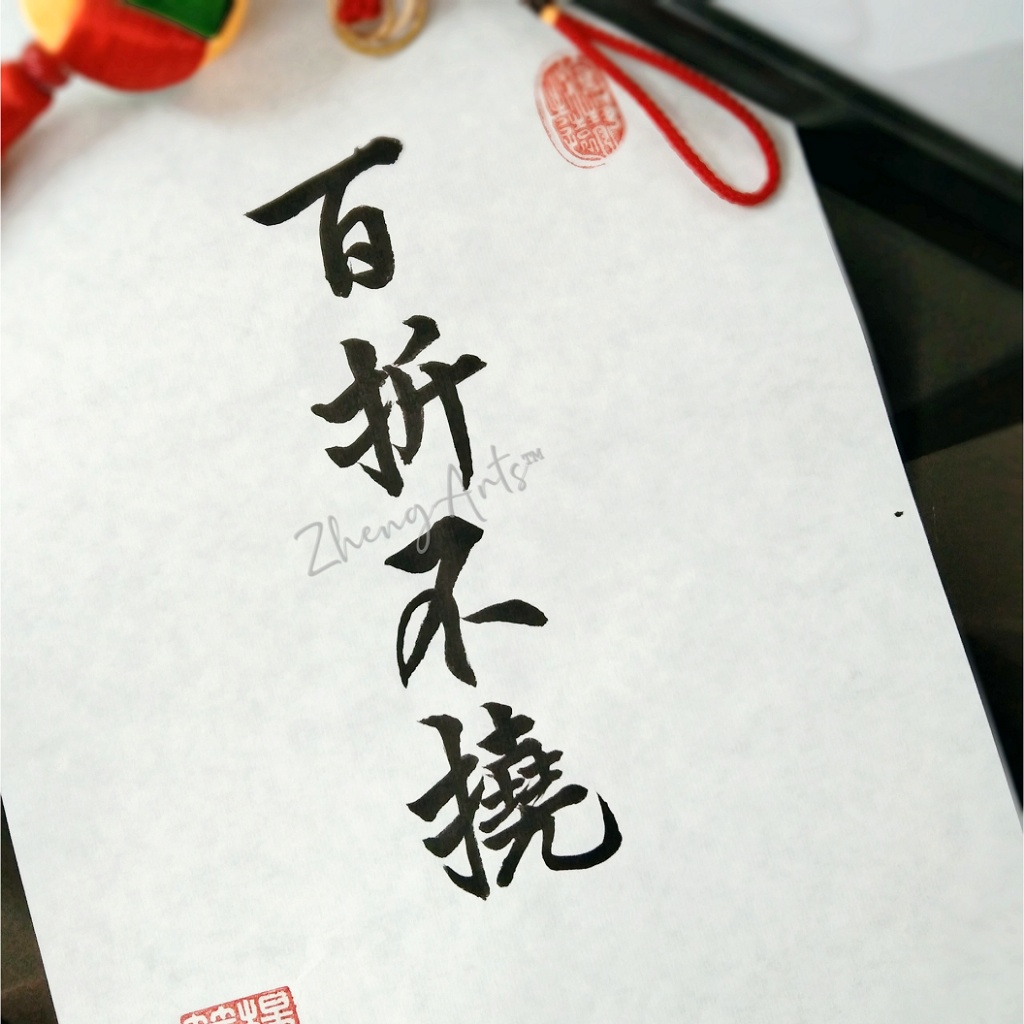 百折不撓
ZhengArts™